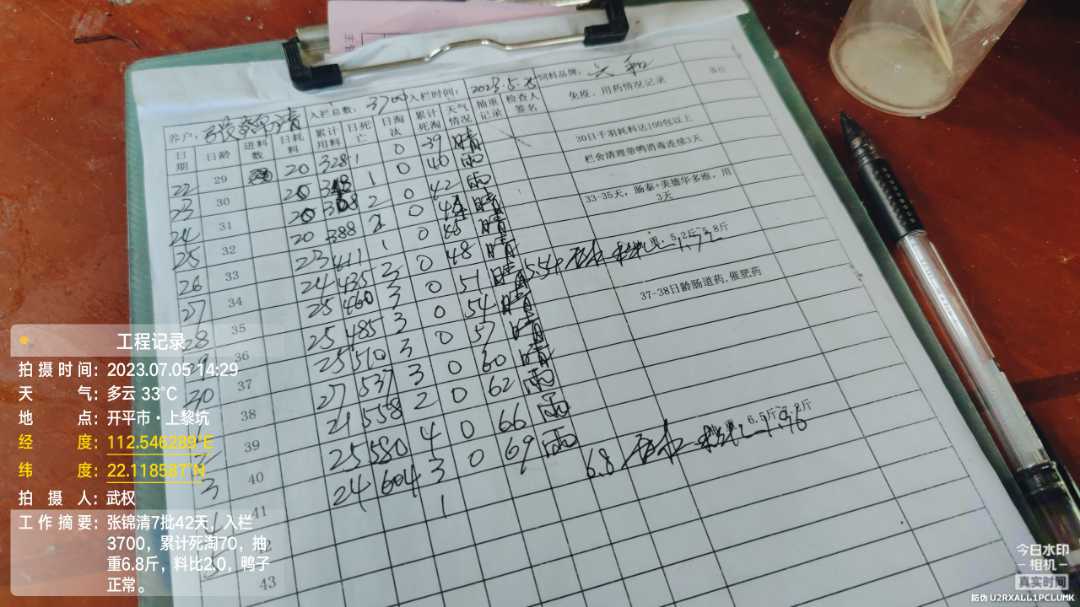 养户：张锦清 入栏总数：3700 入栏时间：2023.5.25 饲料品牌：六和
日期 日龄 进料数 日耗料 累计用料 日死亡 日淘汰 累计死淘 天气情况 抽重记录 检查人签名 免疫、用药情况记录 备注
22 29 20 328 1 0 39 晴 30日手羽耗料达100包以上
23 30 20 348 1 0 40 雨 栏舍清理带鸭消毒连续3天
24 31 20 368 2 0 42 雨
25 32 20 388 2 0 44 晴 33-35天，肠泰+美德华多维，用3天
26 33 23 411 1 0 45 晴
27 34 24 435 3 0 48 晴
28 35 25 460 3 0 51 晴 重：5.2斤-5.8斤
29 36 25 485 3 0 54 晴
30 37 25 510 3 0 57 晴 37-38日龄肠道药，催肥药
38 27 537 3 0 60 晴
39 21 558 2 0 62 雨
3 40 25 580 4 0 66 雨
41 24 604 3 0 69 雨 6.8
42 1
43
工程记录
拍摄时间：2023.07.05 14:29
天气：多云 33℃
地点：开平市·上黎坑
经度：112.546289°E
纬度：22.118587°N
拍摄人：武权
工作摘要：张锦清7批42天，入栏
3700，累计死淘70，抽
重6.8斤，料比2.0，鸭子
正常。
今日水印
相机
真实时间
防伪 U2RXALL1PCLUMK